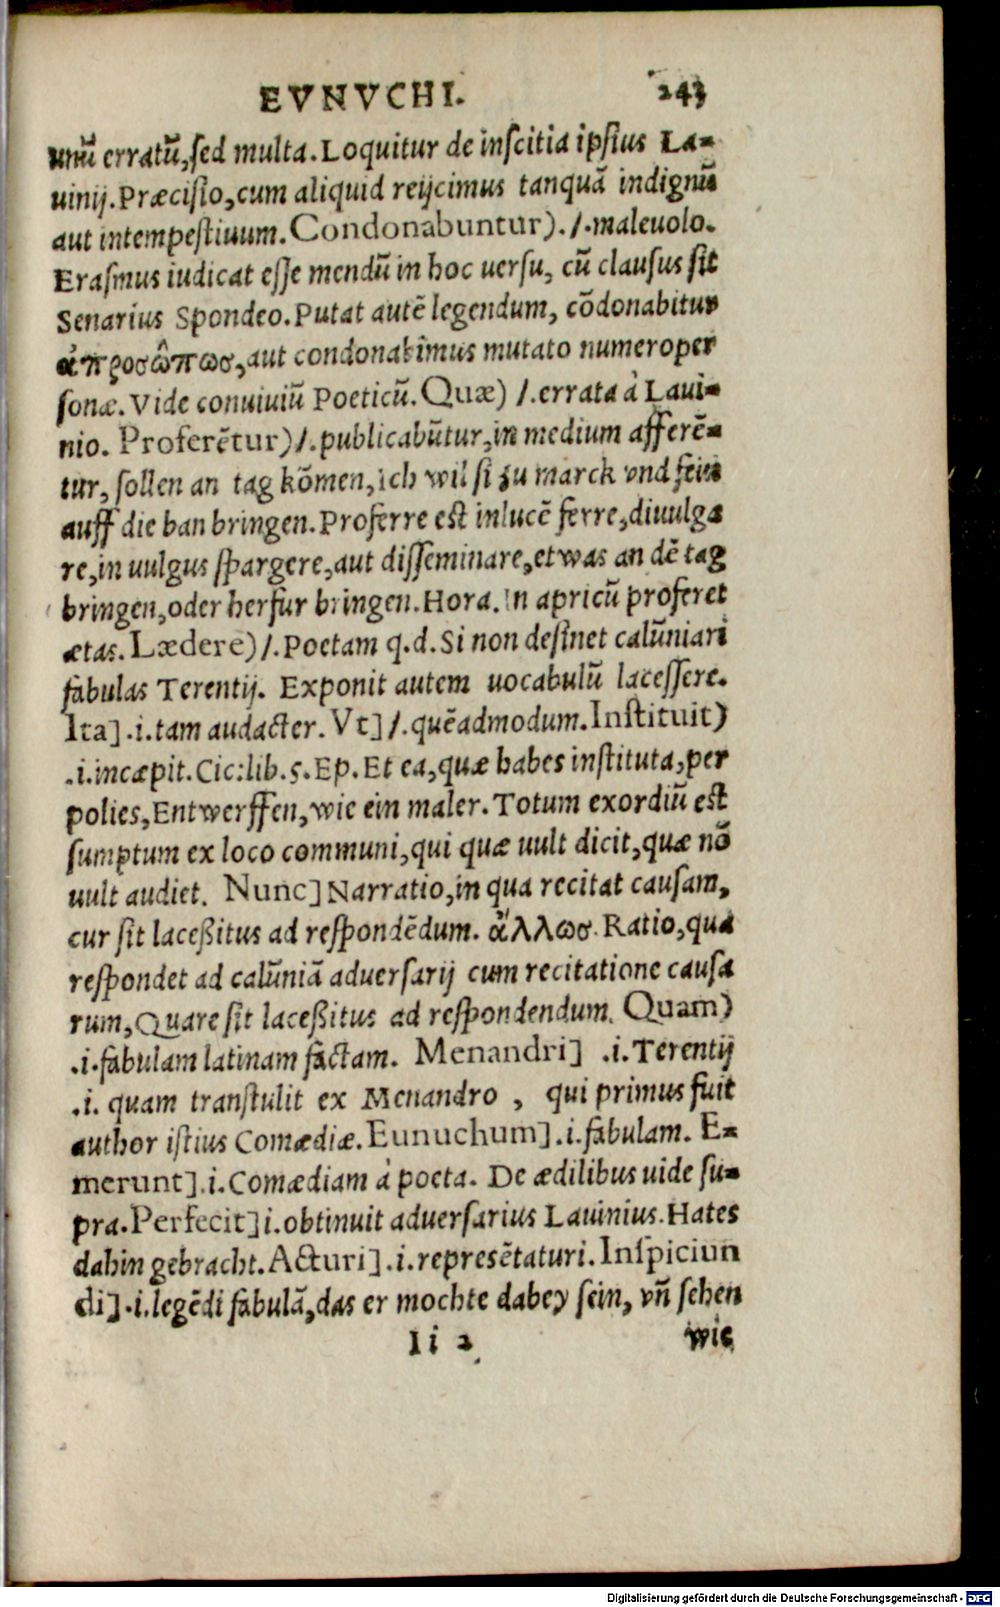 EVNVCHI. 243
unũ erratũ, ſed multa. Loquitur de inſcitia ipſius La-
uinij. Præciſio, cum aliquid reijcimus tanquã indignũ
aut intempeſtiuum. Condonabuntur). /. maleuolo.
Eraſmus iudicat eſſe mendũ in hoc uerſu, cũ clauſus ſit
Senarius Spondeo. Putat autẽ legendum, cõdonabitur
ἀπροσῶπωσ, aut condonabimus mutato numero per
ſonæ. Vide conuiuiũ Poeticũ. Quæ) /. errata à Laui-
nio. Proferẽtur) /. publicabũtur, in medium afferẽ-
tur, ſollen an tag kõmen, ich wil ſi zu marck vnd fein
auff die ban bringen. Proferre eſt in lucẽ ferre, diuulga
re, in uulgus ſpargere, aut diſſeminare, etwas an dẽ tag
bringen, oder herfur bringen. Hora. In apricũ proferet
ætas. Lædere) /. Poetam q. d. Si non deſinet calũniari
fabulas Terentij. Exponit autem uocabulũ laceſſere.
Ita] .i. tam audacter. Vt] /. quẽadmodum. Inſtituit)
.i. incæpit. Cic: lib. 5. Ep. Et ea, quæ habes inſtituta, per
polies, Entwerffen, wie ein maler. Totum exordiũ eſt
ſumptum ex loco communi, qui quæ uult dicit, quæ nõ
uult audiet. Nunc] Narratio, in qua recitat cauſam,
cur ſit laceßitus ad reſpondẽdum. ἄλλωσ. Ratio, qua
reſpondet ad calũniã aduerſarij cum recitatione cauſa
rum, Quare ſit laceßitus ad reſpondendum. Quam)
.i. fabulam latinam factam. Menandri] .i. Terentij
.i. quam tranſtulit ex Menandro , qui primus fuit
author iſtius Comædiæ. Eunuchum] .i. fabulam. E-
merunt] .i. Comædiam à poeta. De ædilibus uide ſu-
pra. Perfecit] i. obtinuit aduerſarius Lauinius. Hates
dahin gebracht. Acturi] .i. repreſẽtaturi. Inſpiciun
di] .i. legẽdi fabulã, das er mochte dabey ſein, vñ ſehen
Ii 2 wie
Digitalisierung gefördert durch die Deutsche Forschungsgemeinschaft - DFG